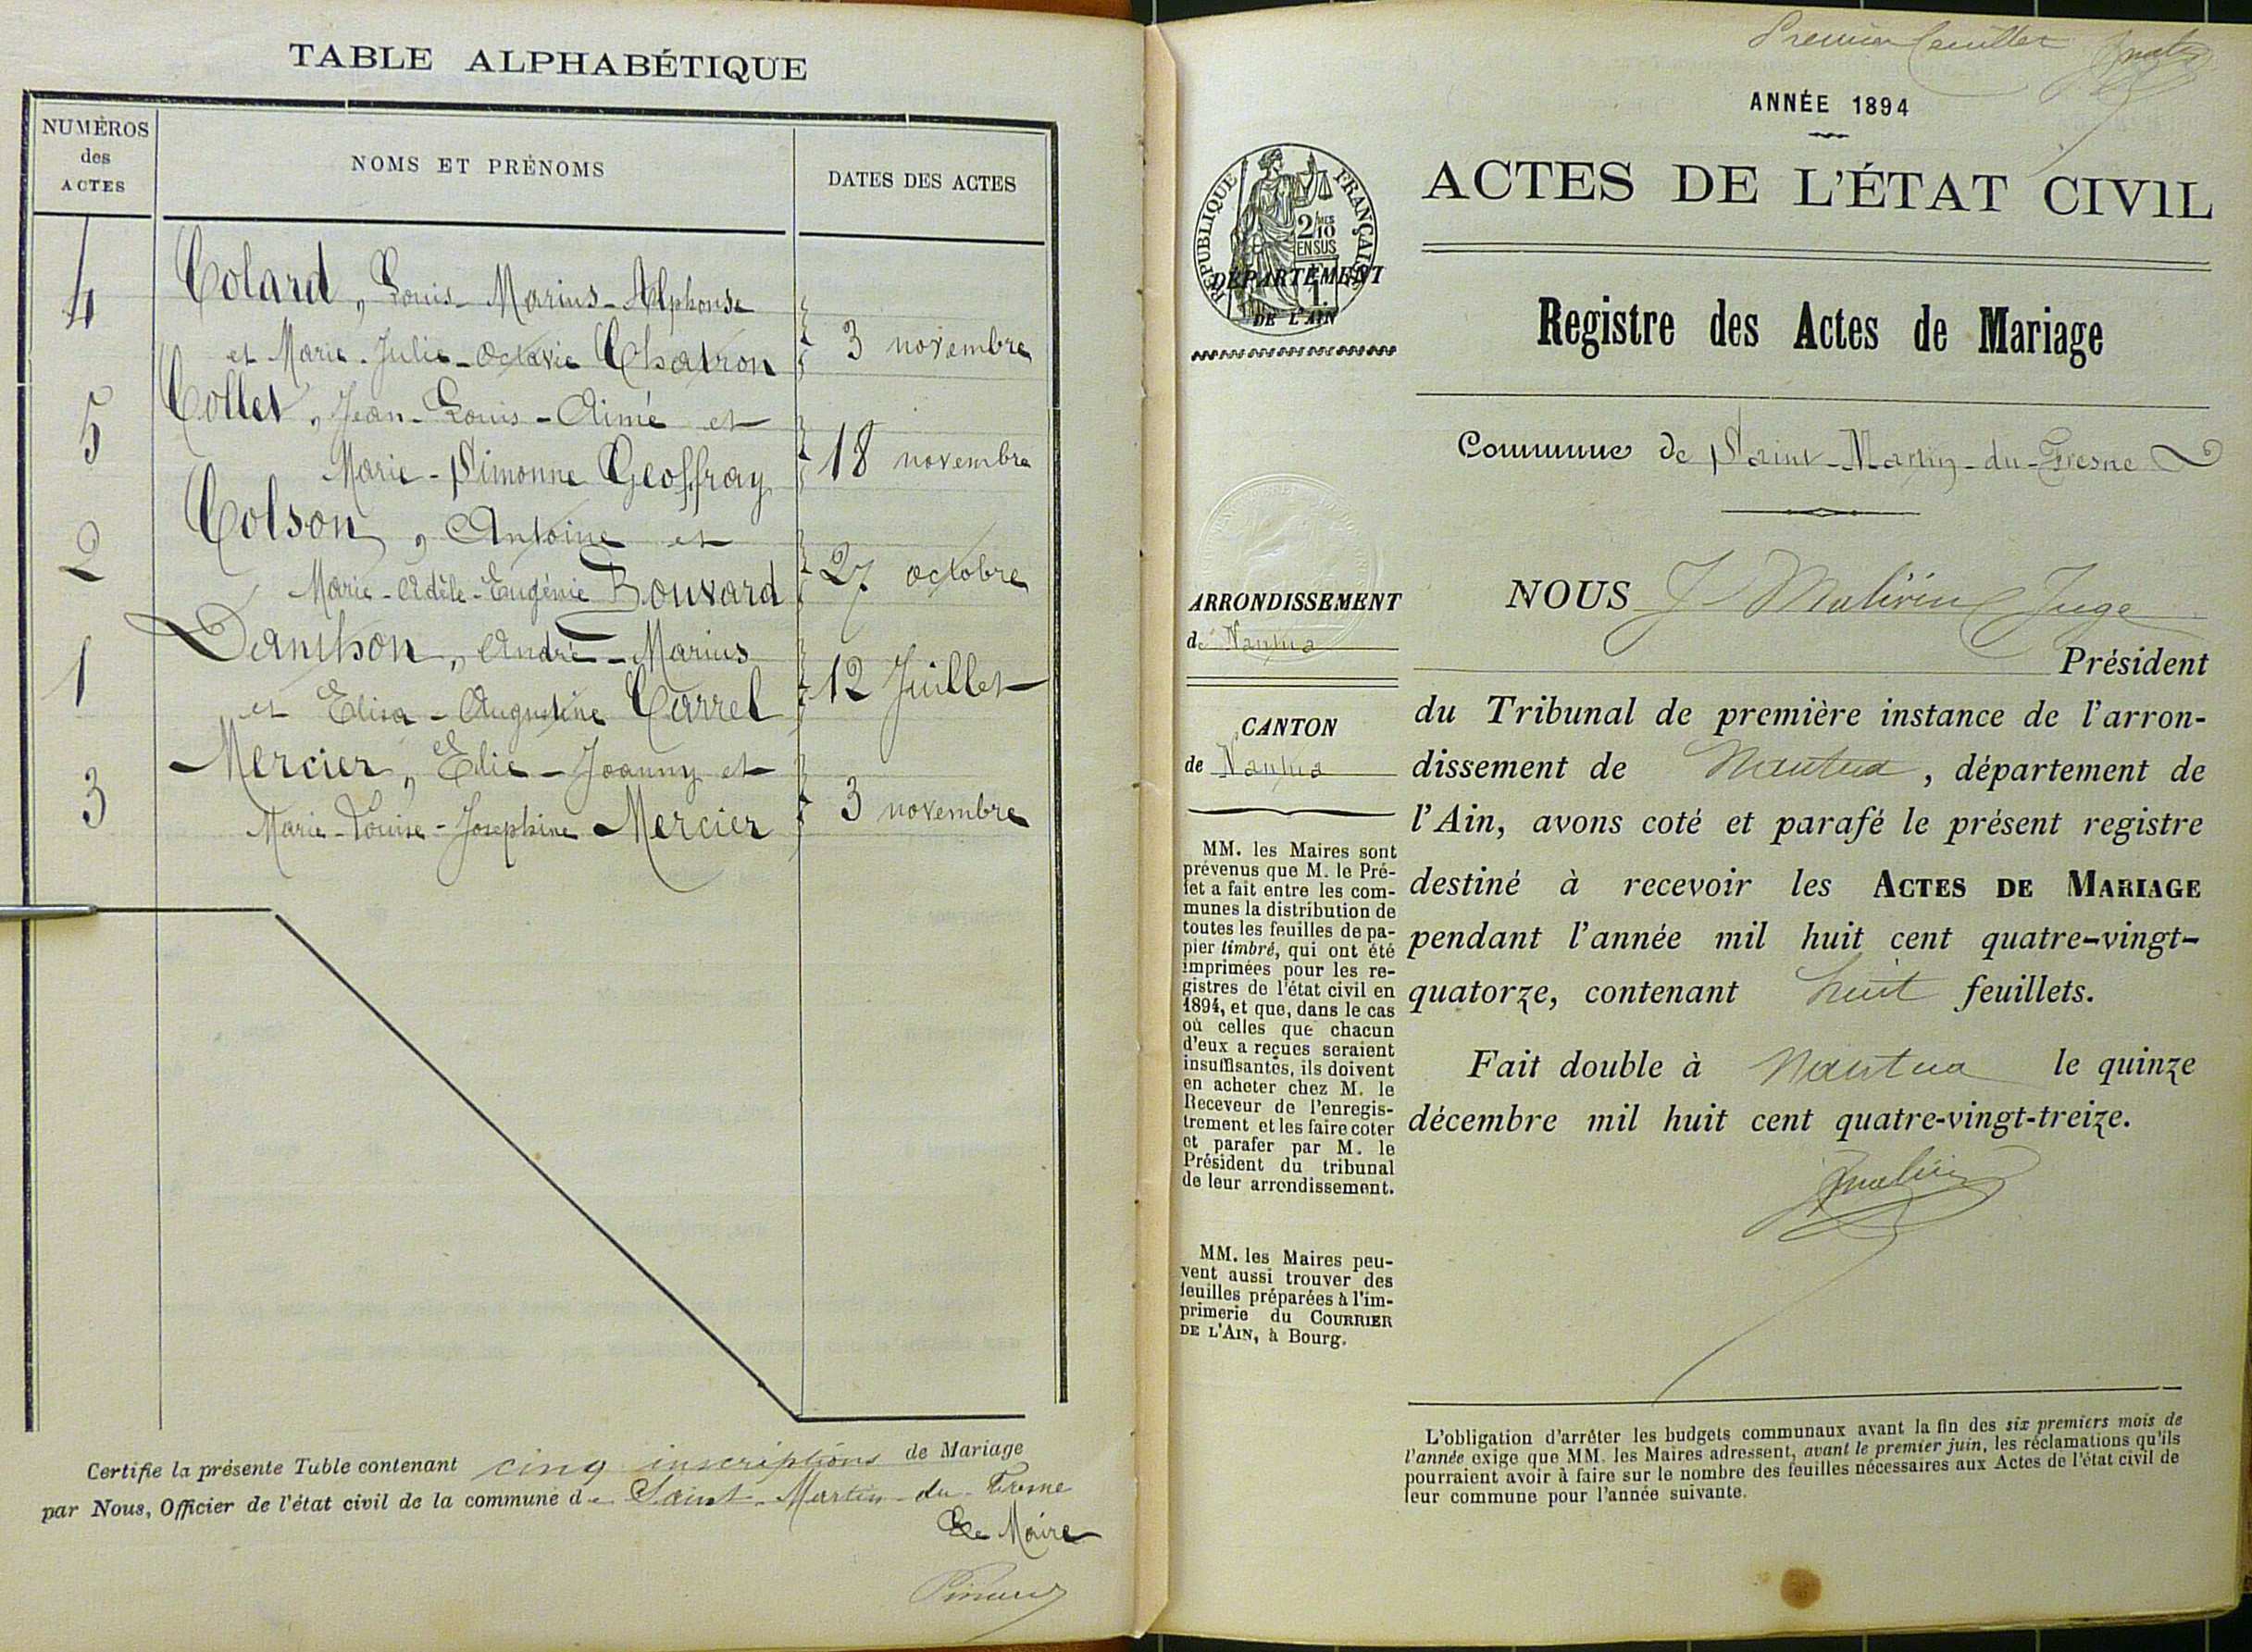 TABLE ALPHABÉTIQUE
NUMÉROS
des
ACTES
NOMS ET PRÉNOMS
DATES DES ACTES
4
Colard, Louis-Marius-Alphonse
et Marie-Julie-Octavie Chatron
3 novembre
5
Collet, Jean-Louis-Aimé et
Marie-Simonne Geoffray
18 novembre
2
Colson, Antoine et
Marie-Adèle-Eugénie Bouvard
27 octobre
1
Danthon, André-Marius
et Elisa-Augustine Carrel
12 Juillet
3
Mercier, Elie-Joanny et
Marie-Louise-Josephine Mercier
3 novembre
Certifie la présente Table contenant cinq inscriptions de Mariage
par Nous, Officier de l'état civil de la commune de Saint-Martin-du-Fresne
Le Maire
Premier feuillet
ANNÉE 1894
ACTES DE L'ÉTAT CIVIL
RÉPUBLIQUE FRANÇAISE
2/10 EN SUS
DÉPARTEMENT
DE L'AIN
Registre des Actes de Mariage
Commune de Saint-Martin-du-Fresne
ARRONDISSEMENT
de Nantua
CANTON
de Nantua
MM. les Maires sont
prévenus que M. le Pré-
fet a fait entre les com-
munes la distribution de
toutes les feuilles de pa-
pier timbré, qui ont été
imprimées pour les re-
gistres de l'état civil en
1894, et que, dans le cas
où celles que chacun
d'eux a reçues seraient
insuffisantes, ils doivent
en acheter chez M. le
Receveur de l'enregis-
trement et les faire coter
et parafer par M. le
Président du tribunal
de leur arrondissement.
MM. les Maires peu-
vent aussi trouver des
feuilles préparées à l'im-
primerie du COURRIER
DE L'AIN, à Bourg.
NOUS J Malivin Juge
Président
du Tribunal de première instance de l'arron-
dissement de Nantua, département de
l'Ain, avons coté et parafé le présent registre
destiné à recevoir les ACTES DE MARIAGE
pendant l'année mil huit cent quatre-vingt-
quatorze, contenant huit feuillets.
Fait double à Nantua le quinze
décembre mil huit cent quatre-vingt-treize.
L'obligation d'arrêter les budgets communaux avant la fin des six premiers mois de
l'année exige que MM. les Maires adressent, avant le premier juin, les réclamations qu'ils
pourraient avoir à faire sur le nombre des feuilles nécessaires aux Actes de l'état civil de
leur commune pour l'année suivante.